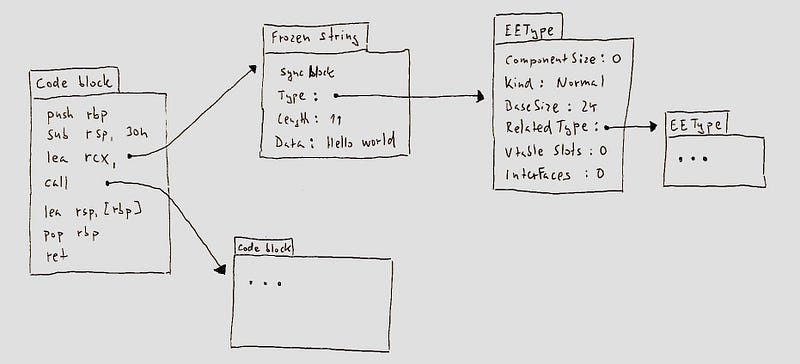 Code block
push rbp
sub rsp, 30h
lea rcx,
call
lea rsp, [rbp]
pop rbp
ret
Frozen string
sync block
Type :
Length : 11
Data : Hello world
EEType
ComponentSize : 0
Kind : Normal
BaseSize : 24
Related Type :
Vtable Slots : 0
Interfaces : 0
EEType
...
Code block
...